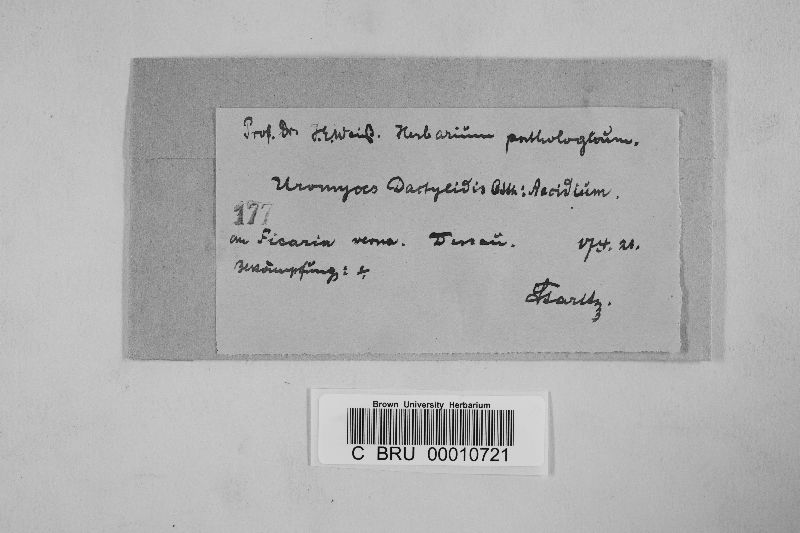 Prof. Dr. H.E.Weiß. Herbarium pathologicum.
Uromyces Dactylidis Otth: Aecidium.
177
an Ficaria verna. Dessau. 17/4. 21.
Bekämpfung:
Staritz.
Brown University Herbarium
C BRU 00010721